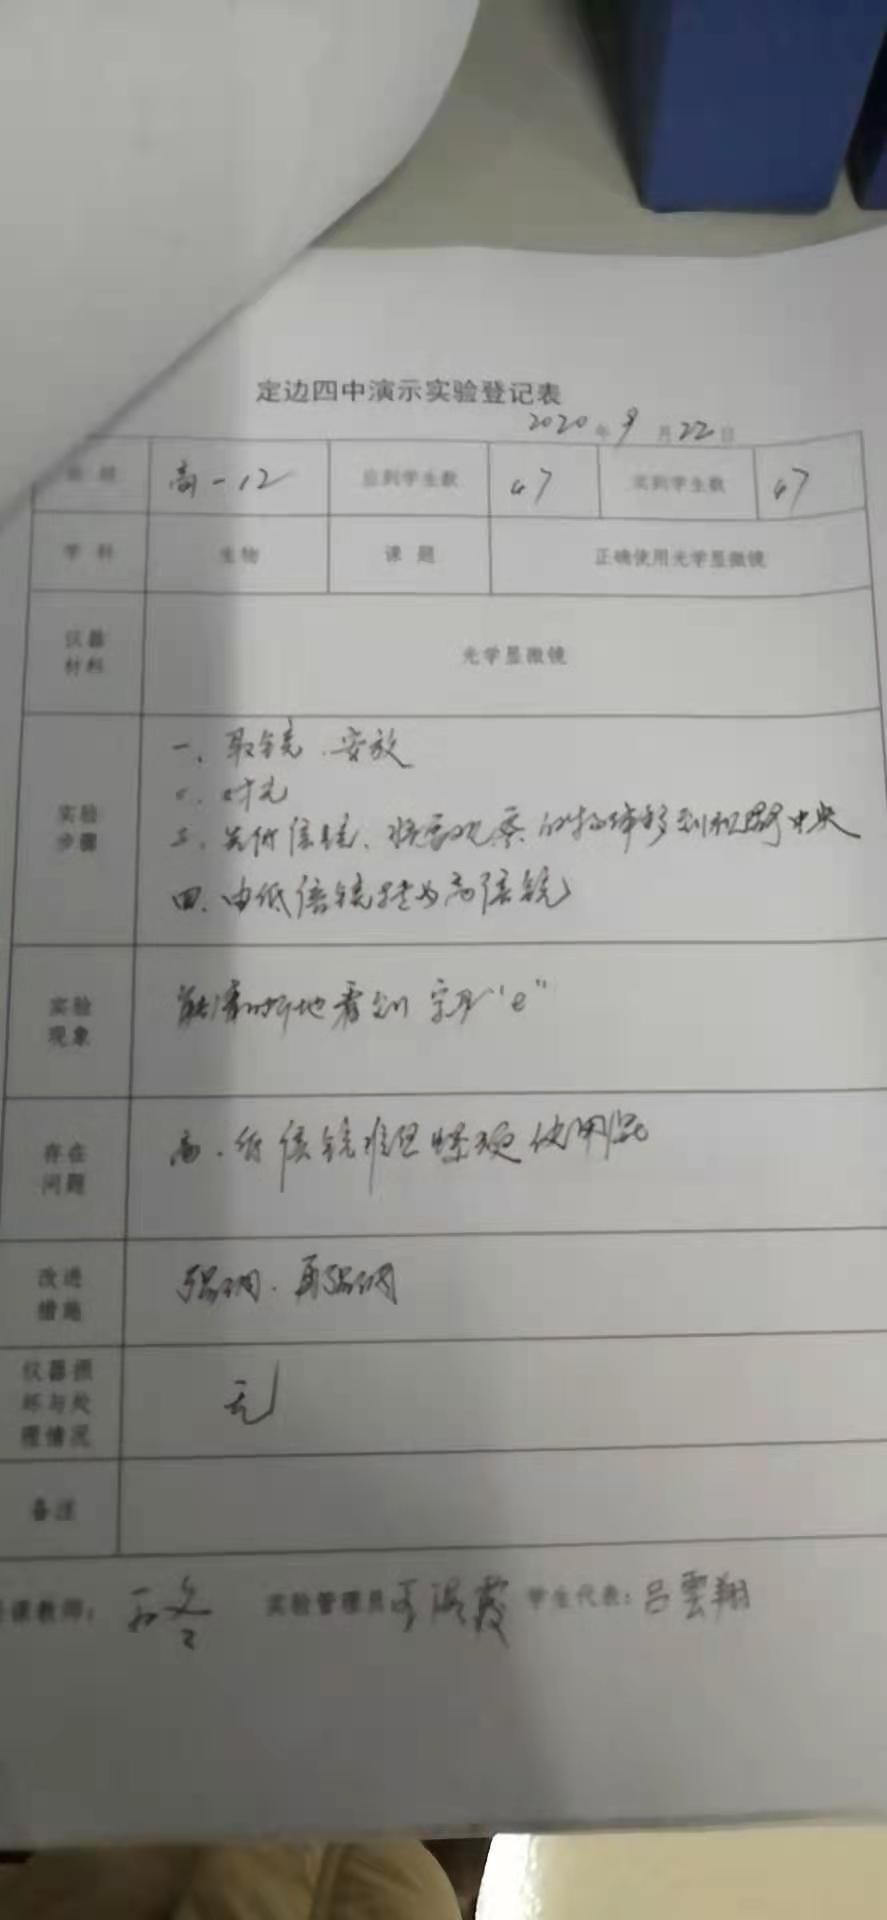 定边四中演示实验登记表
2020年9月22日
班级 高一12 应到学生数 47 实到学生数 47
学科 生物 课题 正确使用光学显微镜
仪器
材料
光学显微镜
实验
步骤
一、取镜、安放
二、对光
三、先低倍镜、将要观察的物体移到视野中央
四、由低倍镜转为高倍镜
实验
现象
能清晰地看到字母“e”
存在
问题
高、低倍镜 使用
改进
措施
强调、再强调
仪器损
坏与处
理情况
无
备注
任课教师: 实验管理员 霞 学生代表: 吕雲翔